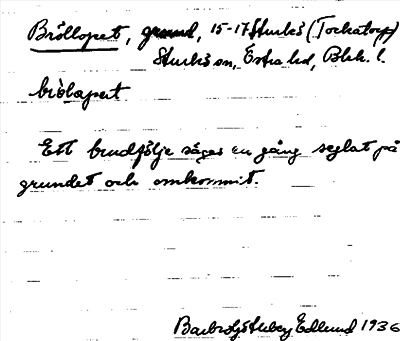 Bröllopet, grund, 15-17 Sturkö (Torhatorp)
Sturkö sn, Östra hd, Blek. l.
brölapert
Ett brudfölje säges en gång seglat på
grundet och omkommit.
Edlund 1936